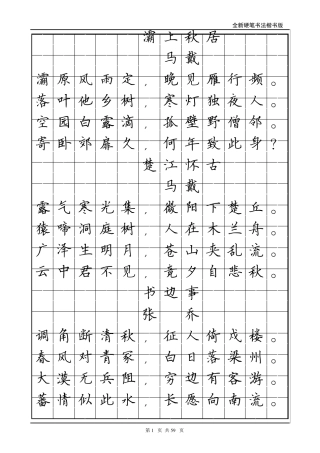 全新硬笔书法楷书版
灞上秋居
马戴
灞原风雨定，晚见雁行频。
落叶他乡树，寒灯独夜人。
空园白露滴，孤壁野僧邻。
寄卧郊扉久，何年致此身？
楚江怀古
马戴
露气寒光集，微阳下楚丘。
猿啼洞庭树，人在木兰舟。
广泽生明月，苍山夹乱流。
云中君不见，竟夕自悲秋。
书边事
张乔
调角断清秋，征人倚戍楼。
春风对青冢，白日落梁州。
大漠无兵阻，穷边有客游。
蕃情似此水，长愿向南流。
第 1 页 共 59 页